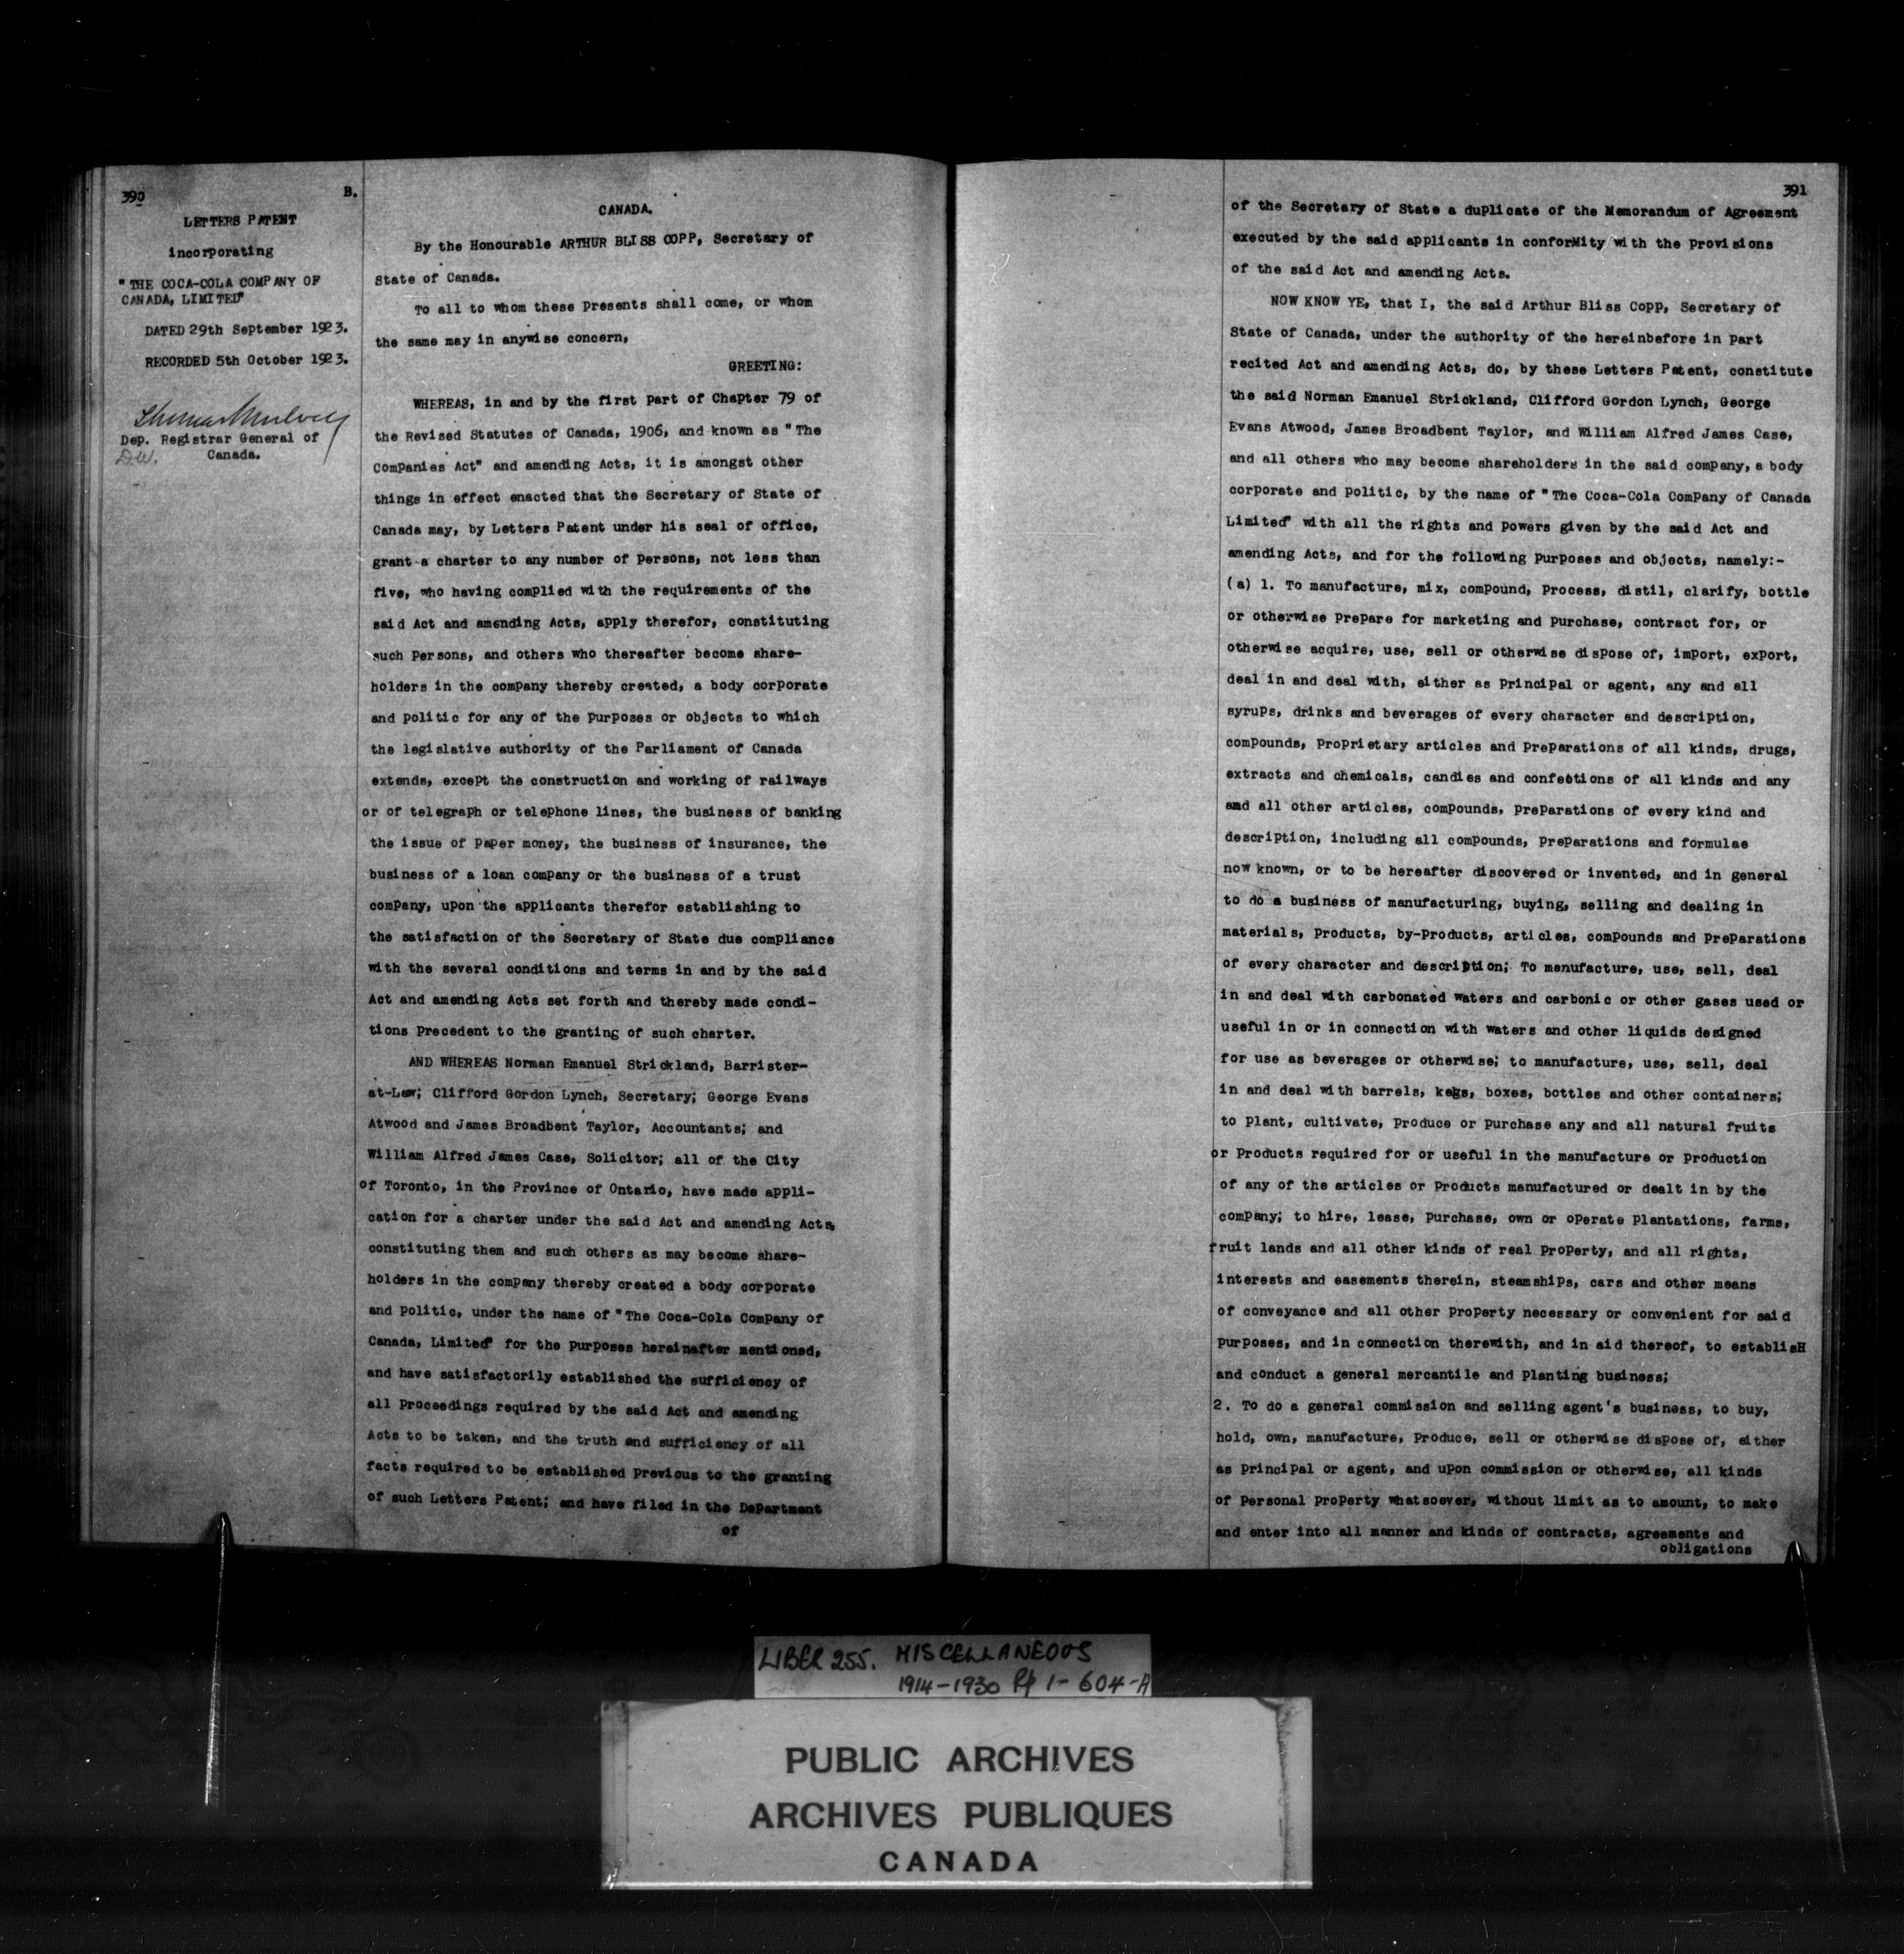 390
B.
LETTERS PATENT
incorporating
"THE COCA-COLA COMPANY OF
CANADA, LIMITED"
DATED 29th September 1923.
RECORDED 5th October 1923.
Thomas Mulvey
Dep. Registrar General of
Canada.
D.W.
CANADA.
By the Honourable ARTHUR BLISS COPP, Secretary of
State of Canada.
To all to whom these Presents shall come, or whom
the same may in anywise concern,
GREETING:
WHEREAS, in and by the first Part of Chapter 79 of
the Revised Statutes of Canada, 1906, and known as "The
Companies Act" and amending Acts, it is amongst other
things in effect enacted that the Secretary of State of
Canada may, by Letters Patent under his seal of office,
grant a charter to any number of Persons, not less than
five, who having complied with the requirements of the
said Act and amending Acts, apply therefor, constituting
such Persons, and others who thereafter become share-
holders in the company thereby created, a body corporate
and Politic for any of the Purposes or objects to which
the legislative authority of the Parliament of Canada
extends, except the construction and working of railways
or of telegraph or telephone lines, the business of banking
the issue of Paper money, the business of insurance, the
business of a loan company or the business of a trust
company, upon the applicants therefor establishing to
the satisfaction of the Secretary of State due compliance
with the several conditions and terms in and by the said
Act and amending Acts set forth and thereby made condi-
tions Precedent to the granting of such charter.
AND WHEREAS Norman Emanuel Strickland, Barrister-
at-Law; Clifford Gordon Lynch, Secretary; George Evans
Atwood and James Broadbent Taylor, Accountants; and
William Alfred James Case, Solicitor; all of the City
of Toronto, in the Province of Ontario, have made appli-
cation for a charter under the said Act and amending Acts,
constituting them and such others as may become share-
holders in the company thereby created a body corporate
and Politic, under the name of "The Coca-Cola Company of
Canada, Limited" for the Purposes hereinafter mentioned,
and have satisfactorily established the sufficiency of
all Proceedings required by the said Act and amending
Acts to be taken, and the truth and sufficiency of all
facts required to be established Previous to the granting
of such Letters Patent; and have filed in the Department
of
391
of the Secretary of State a duplicate of the Memorandum of Agreement
executed by the said applicants in conforMity with the Provisions
of the said Act and amending Acts.
NOW KNOW YE, that I, the said Arthur Bliss Copp, Secretary of
State of Canada, under the authority of the hereinbefore in Part
recited Act and amending Acts, do, by these Letters Patent, constitute
the said Norman Emanuel Strickland, Clifford Gordon Lynch, George
Evans Atwood, James Broadbent Taylor, and William Alfred James Case,
and all others who may become shareholders in the said company, a body
corporate and Politic, by the name of "The Coca-Cola Company of Canada
Limited" with all the rights and Powers given by the said Act and
amending Acts, and for the following Purposes and objects, namely:-
(a) 1. To manufacture, mix, compound, Process, distil, clarify, bottle
or otherwise Prepare for marketing and Purchase, contract for, or
otherwise acquire, use, sell or otherwise dispose of, import, export,
deal in and deal with, either as Principal or agent, any and all
syrups, drinks and beverages of every character and description,
compounds, Proprietary articles and Preparations of all kinds, drugs,
extracts and chemicals, candies and confections of all kinds and any
and all other articles, compounds, Preparations of every kind and
description, including all compounds, Preparations and formulae
now known, or to be hereafter discovered or invented, and in general
to do a business of manufacturing, buying, selling and dealing in
materials, Products, by-Products, articles, compounds and Preparations
of every character and description; To manufacture, use, sell, deal
in and deal with carbonated waters and carbonic or other gases used or
useful in or in connection with waters and other liquids designed
for use as beverages or otherwise; to manufacture, use, sell, deal
in and deal with barrels, kegs, boxes, bottles and other containers;
to Plant, cultivate, Produce or Purchase any and all natural fruits
or Products required for or useful in the manufacture or Production
of any of the articles or Products manufactured or dealt in by the
company; to hire, lease, Purchase, own or operate Plantations, farms,
fruit lands and all other kinds of real Property, and all rights,
interests and easements therein, steamships, cars and other means
of conveyance and all other Property necessary or convenient for said
Purposes, and in connection therewith, and in aid thereof, to establisH
and conduct a general mercantile and Planting business;
2. To do a general commission and selling agent's business, to buy,
hold, own, manufacture, Produce, sell or otherwise dispose of, either
as Principal or agent, and upon commission or otherwise, all kinds
of Personal Property whatsoever, without limit as to amount, to make
and enter into all manner and kinds of contracts, agreements and
obligations
LIBER 255. MISCELLANEOUS
1914-1930 Pp 1-604-A
PUBLIC ARCHIVES
ARCHIVES PUBLIQUES
CANADA